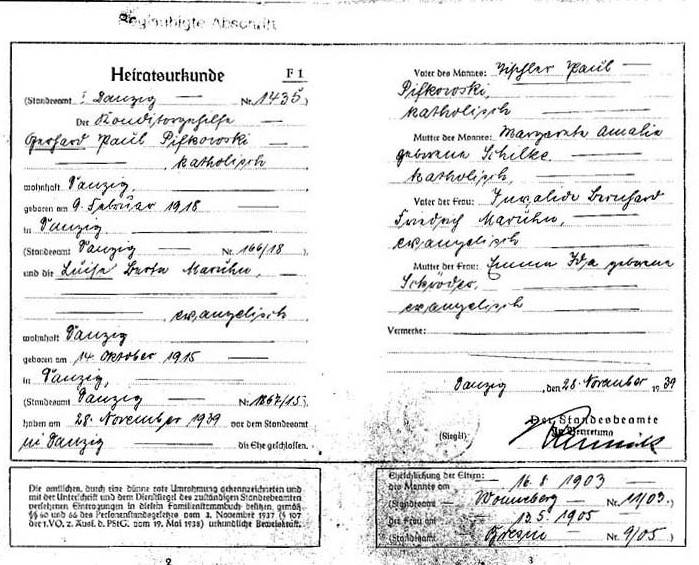 Beglaubigte Abschrift
Heiratsurkunde F 1
(Standesamt Danzig — Nr. 1435)
Der Konditorgehilfe
Gerhard Paul Pifkowski —
— , katholisch
wohnhaft Danzig,
geboren am 9. Februar 1918 —
in Danzig —
(Standesamt Danzig — Nr. 166/18),
und die Luise Berta Maruhn, —
— , evangelisch
wohnhaft Danzig
geboren am 14. Oktober 1915 —
in Danzig, —
(Standesamt Danzig — Nr. 1867/15),
haben am 28. November 1939 vor dem Standesamt
in Danzig die Ehe geschlossen.
Die amtlichen, durch eine dünne rote Umrahmung gekennzeichneten und
mit der Unterschrift und dem Dienstsiegel des zuständigen Standesbeamten
versehenen Eintragungen in diesem Familienstammbuch besitzen, gemäß
§§ 60 und 66 des Personenstandsgesetzes vom 3. November 1937 (§ 107
der 1. VO. z. Ausf. d. PStG. vom 19. Mai 1938) urkundliche Beweiskraft.
2
Vater des Mannes: Tischler Paul —
Pifkowski,
katholisch
Mutter des Mannes: Margarete Amalie
geborene Schilke,
katholisch,
Vater der Frau: Invalide Bernhard
Friedrich Maruhn,
evangelisch
Mutter der Frau: Emma Ida geborene
Schröder,
evangelisch
Vermerke: —
Danzig, den 28. November 1939
Der Standesbeamte
(Siegel) In Vertretung
Eheschließung der Eltern:
des Mannes am 16.8 1903 —
(Standesamt Wonneberg — Nr. 11/03)
der Frau am 13.5. 1905 —
(Standesamt Brösen Nr. 9/05)
3